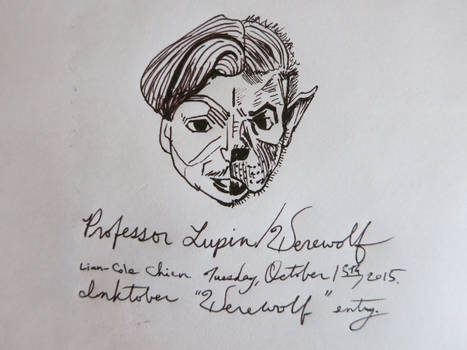 Professor Lupin/Werewolf
Lian-Cole Chien Tuesday, October 15th, 2015.
Inktober "Werewolf" entry.